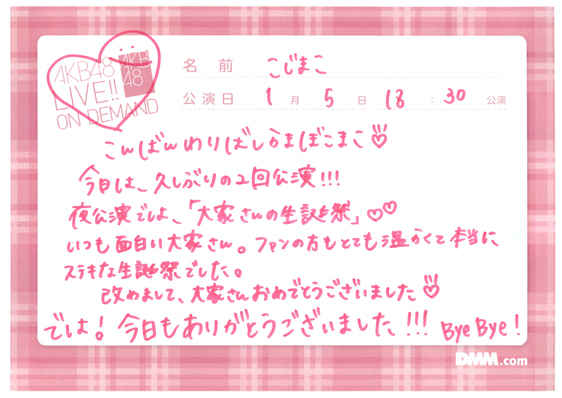 AKB48
LIVE!!
ON DEMAND
AKB
48
名前 こじまこ
公演日 1月5日 18:30公演
こんばんわりばしかまぼこまこ
今日は、久しぶりの2回公演!!!
夜公演では、「大家さんの生誕祭」♡♡
いつも面白い大家さん。ファンの方もとても温かくて本当に
ステキな生誕祭でした。
改めまして、大家さんおめでとうございました
では!今日もありがとうございました!!! Bye Bye!
DMM.com